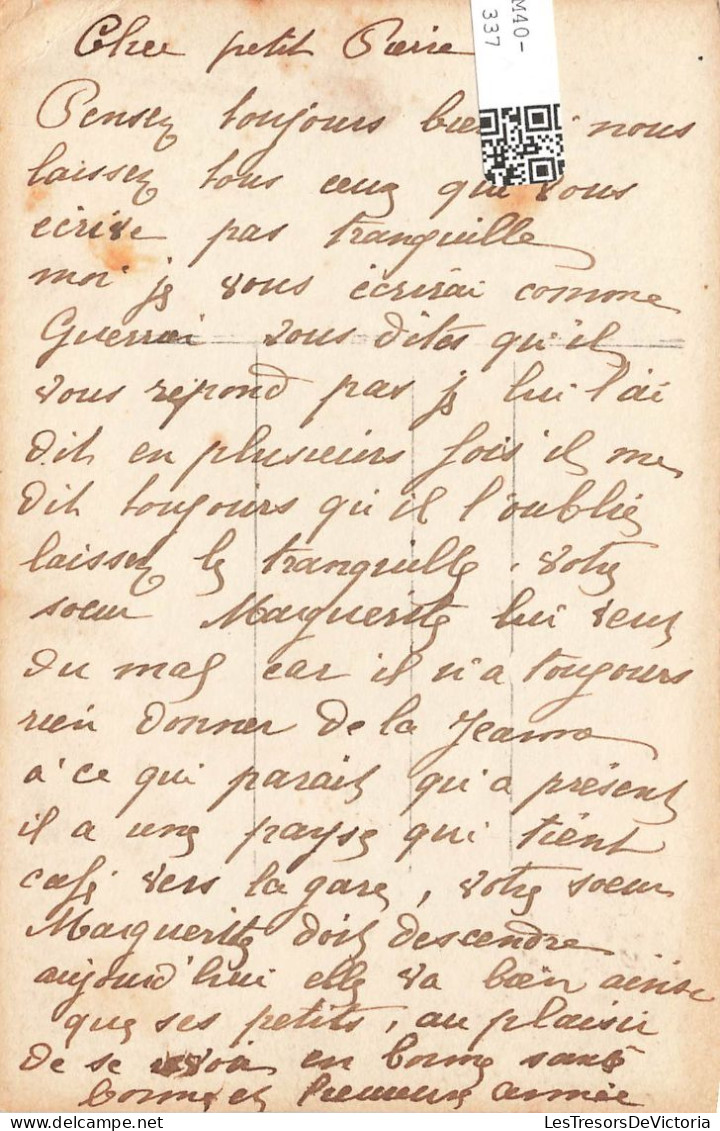 M40-
337
Cher petit Pierre
Pensez toujours bien à nous
laissez tous ceux qui vous
écrive pas tranquille
moi je vous écrirai comme
Guerrai vous dites qu'il
vous répond pas je lui l'ai
dit en plusieurs fois il me
dit toujours qu'il l'oublie
laissez le tranquille, votre
soeur Marguerite lui veut
du mal car il n'a toujours
rien donner de la Jeanne
à ce qui parait qu'a présent
il a une payse qui tient
café vers la gare, votre soeur
Marguerite doit descendre
aujourd'hui elle va bien ainsi
que ses petits, au plaisir
de se voir en bonne santé
bonne et heureuse année
delcampe.net
LesTresorsDeVictoria